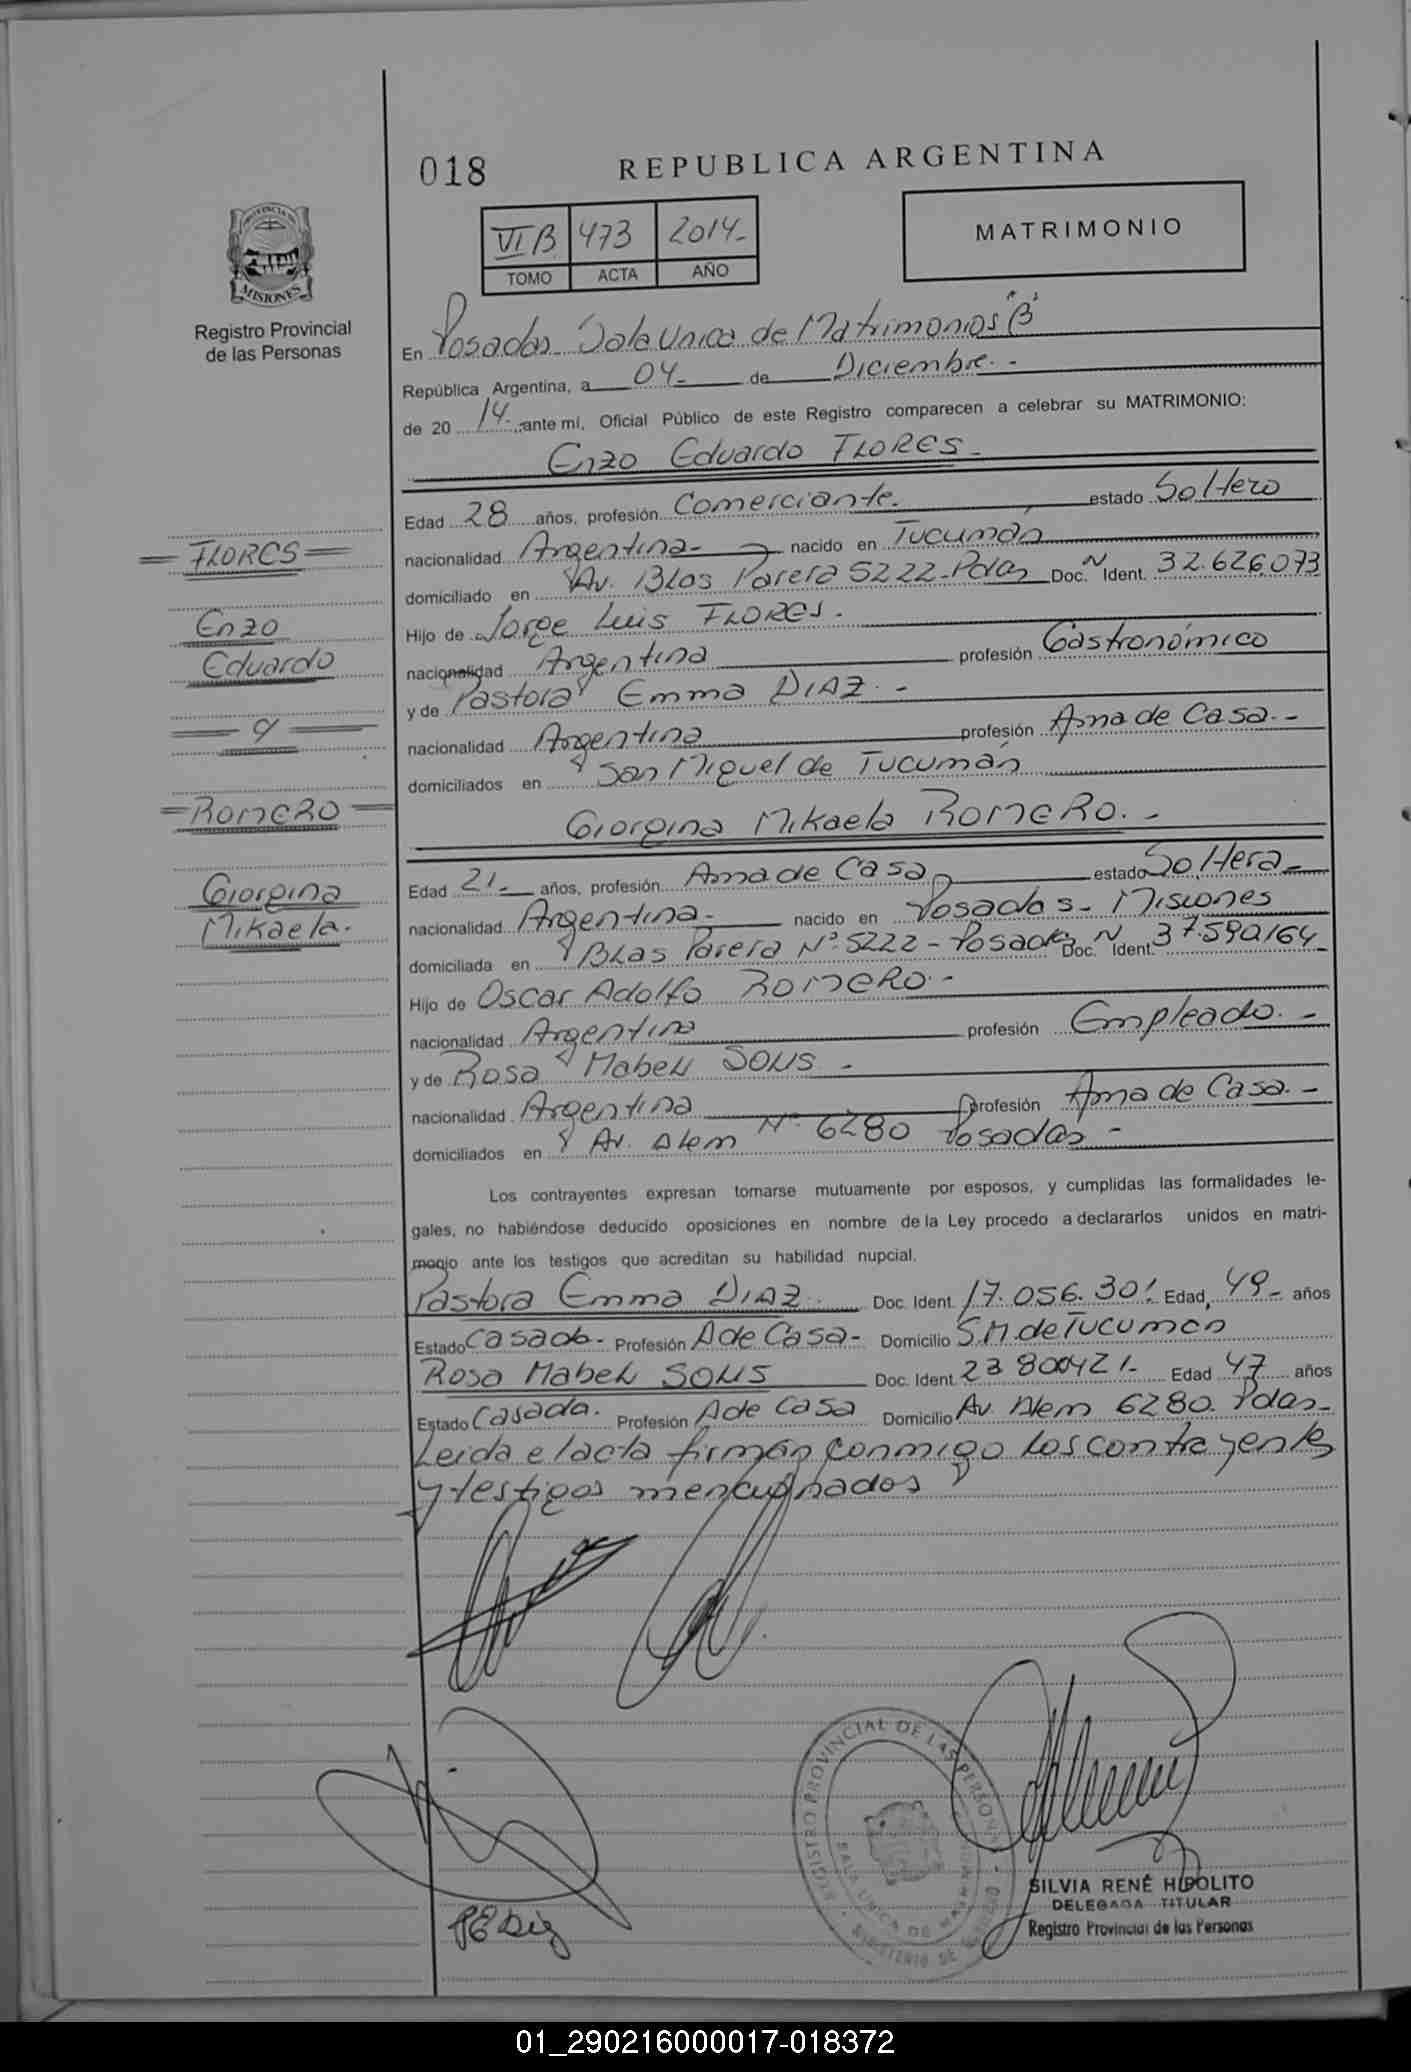 018
REPUBLICA ARGENTINA
VI B 473 2014-
TOMO ACTA AÑO
MATRIMONIO
PROVINCIA DE
MISIONES
Registro Provincial
de las Personas
En Posadas Sala Unica de Matrimonios "B"
República Argentina, a 04- de Diciembre.-
de 20 14- ante mí, Oficial Público de este Registro comparecen a celebrar su MATRIMONIO:
Enzo Eduardo FLORES-
Edad 28 años, profesión Comerciante. estado Soltero
nacionalidad Argentina- nacido en Tucumán
domiciliado en Av. Blas Parera 5222-Pdas Doc. N Ident. 32.626.073
Hijo de Jorge Luis FLORES.
nacionalidad Argentina profesión Gastronómico
y de Pastora Emma DIAZ.-
nacionalidad Argentina profesión Ama de Casa.-
domiciliados en San Miguel de Tucumán
Giorgina Mikaela ROMERO.-
Edad 21- años, profesión Ama de Casa estado Soltera-
nacionalidad Argentina- nacido en Posadas- Misiones
domiciliada en Blas Parera Nº 5222-Posadas Doc. N Ident. 37.590.164-
Hijo de Oscar Adolfo ROMERO.-
nacionalidad Argentina profesión Empleado.-
y de Rosa Mabel SOLIS-
nacionalidad Argentina profesión Ama de Casa.-
domiciliados en Av. Alem Nº 6280 Posadas-
Los contrayentes expresan tomarse mutuamente por esposos, y cumplidas las formalidades le-
gales, no habiéndose deducido oposiciones en nombre de la Ley procedo a declararlos unidos en matri-
monio ante los testigos que acreditan su habilidad nupcial.
Pastora Emma DIAZ Doc. Ident. 17.056.301 Edad, 49- años
Estado Casada- Profesión A de Casa- Domicilio S.M. de Tucumán
Rosa Mabel SOLIS Doc. Ident. Edad 47 años
Estado Casada. Profesión A de Casa Domicilio Av. Alem 6280. Pdas-
Leida el acta firman conmigo los contrayentes
y testigos mencionados
=FLORES=
Enzo
Eduardo
= y =
=ROMERO=
Giorgina
Mikaela.
PE Diaz
REGISTRO PROVINCIAL DE LAS PERSONAS
SALA UNICA DE
MINISTERIO DE
SILVIA RENÉ HIPOLITO
DELEGADA TITULAR
Registro Provincial de las Personas
01_290216000017-018372